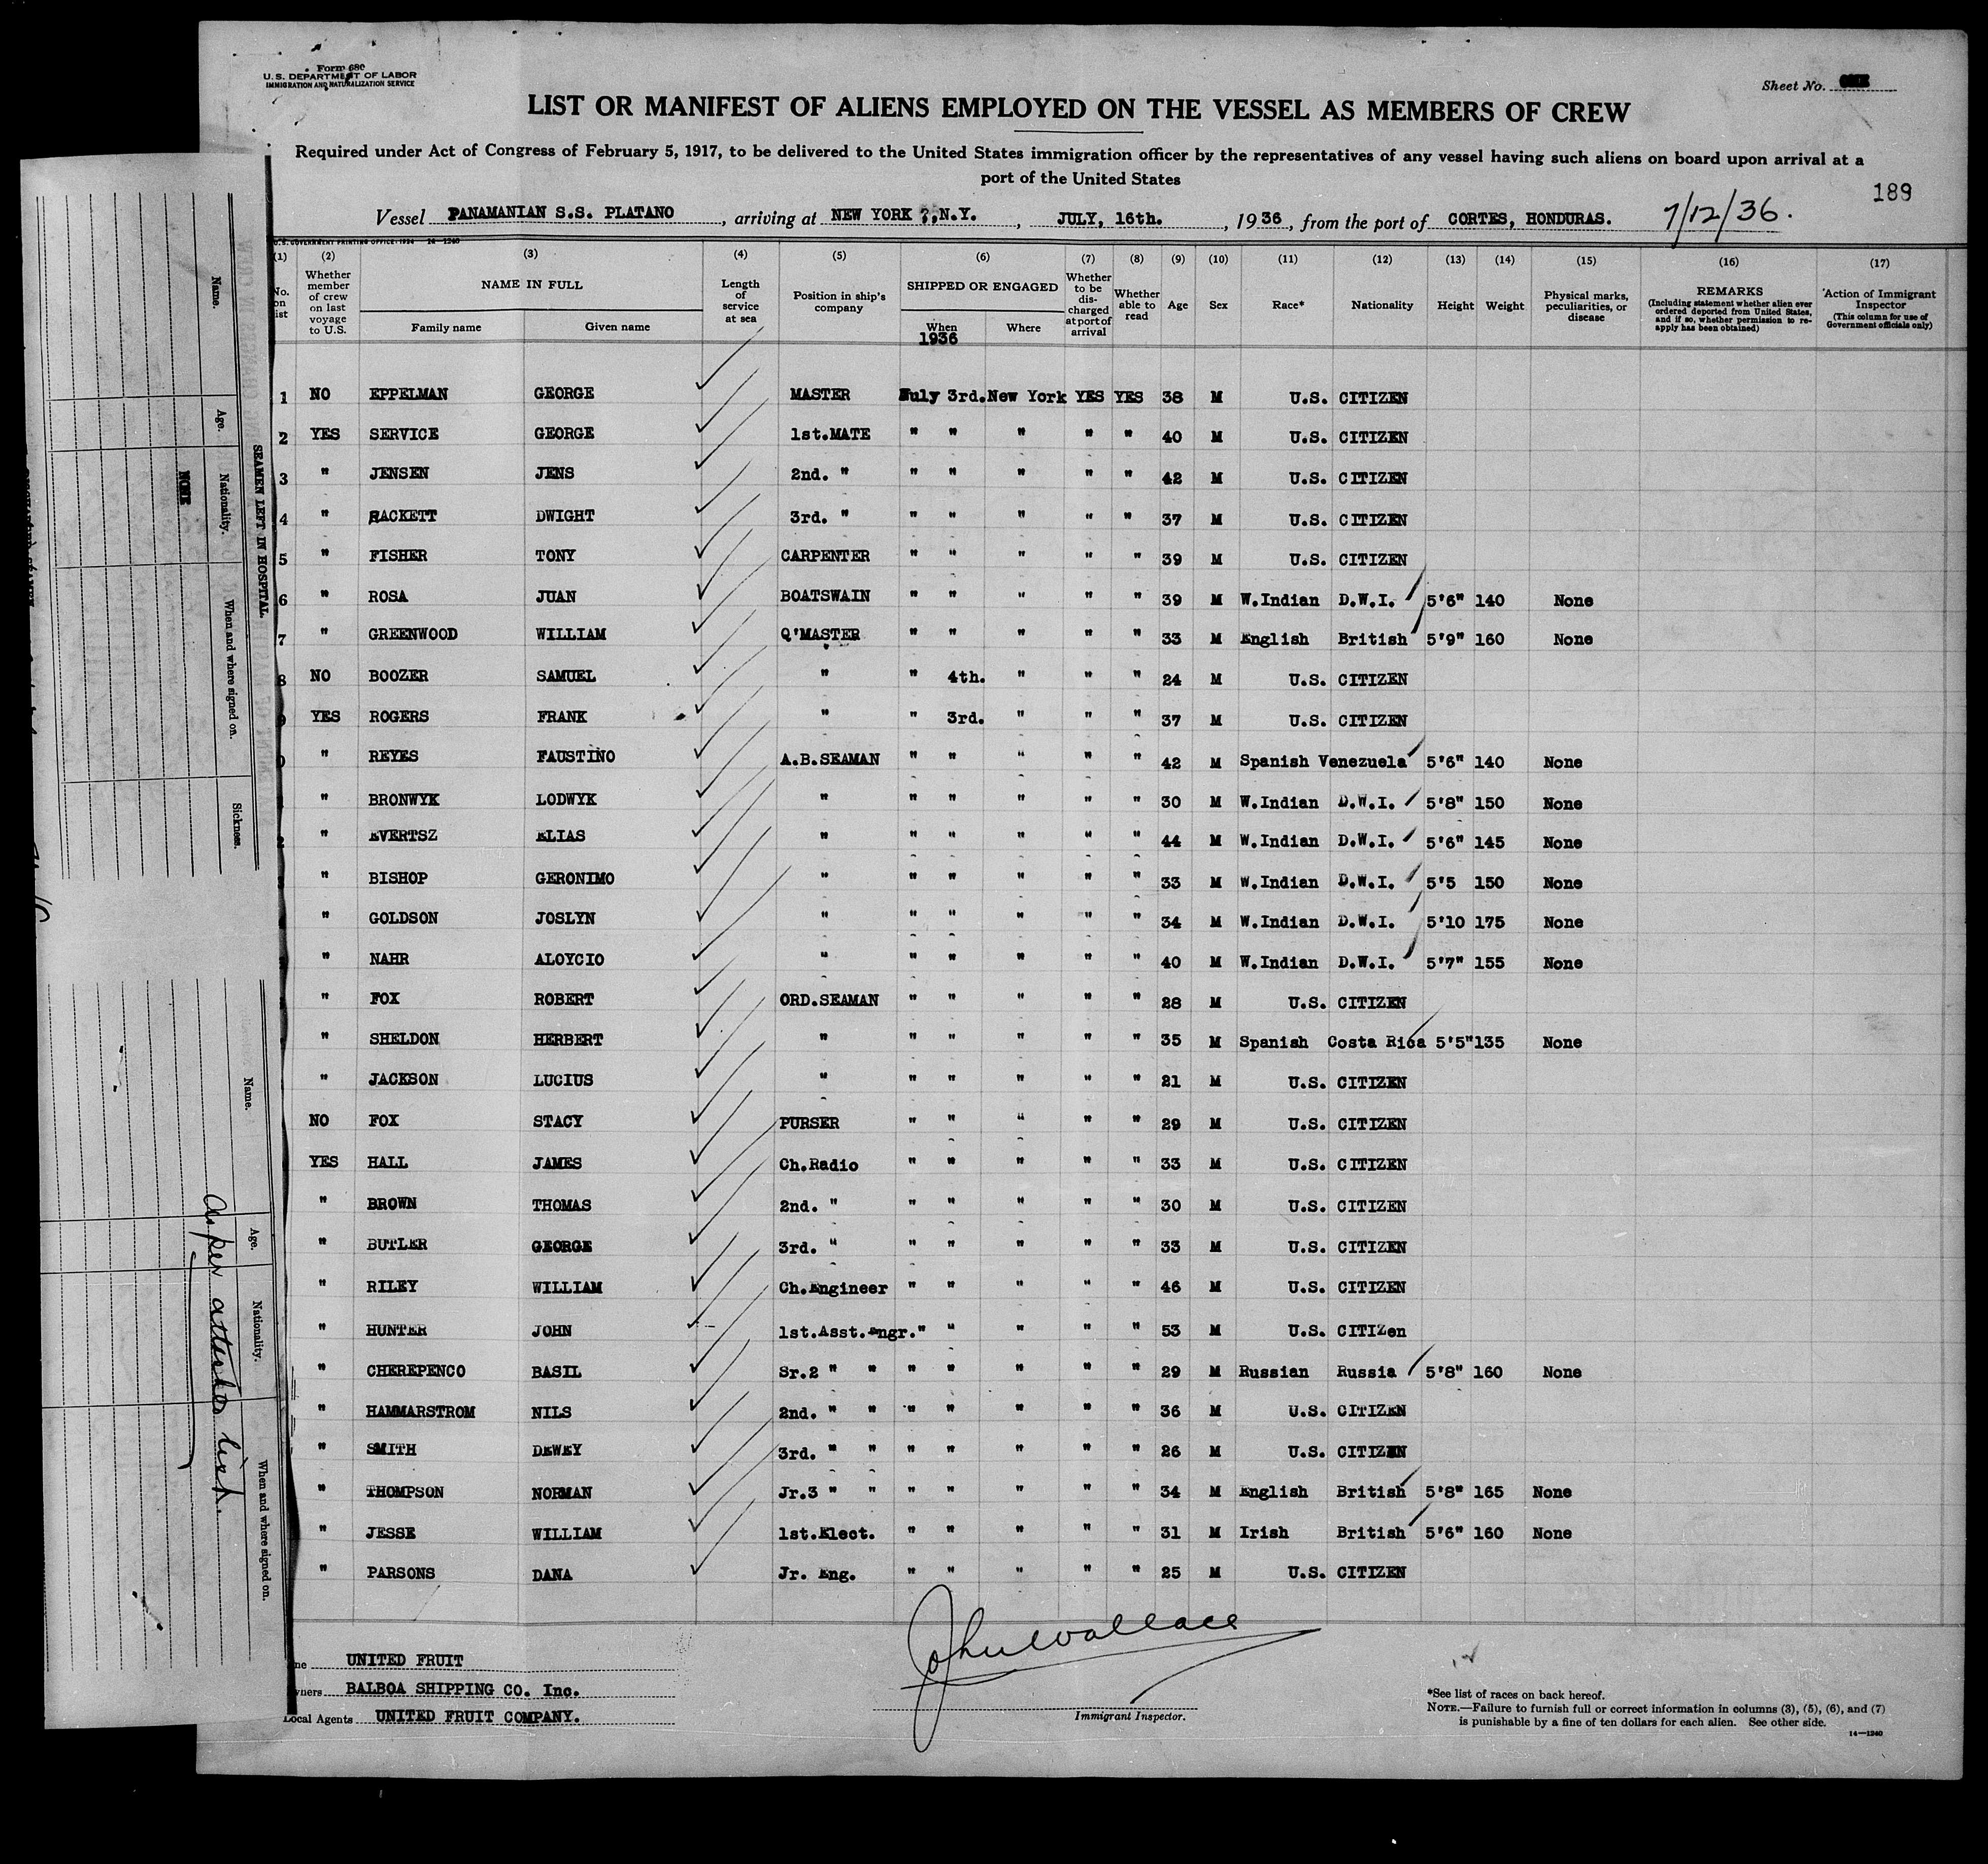 Form 680
U.S. DEPARTMENT OF LABOR
IMMIGRATION AND NATURALIZATION SERVICE
Sheet No.
LIST OR MANIFEST OF ALIENS EMPLOYED ON THE VESSEL AS MEMBERS OF CREW
Required under Act of Congress of February 5, 1917, to be delivered to the United States immigration officer by the representatives of any vessel having such aliens on board upon arrival at a
port of the United States
189
Vessel PANAMANIAN S.S. PLATANO, arriving at NEW YORK ?, N.Y., JULY, 16th., 1936, from the port of CORTES, HONDURAS. 7/12/36.
U.S. GOVERNMENT PRINTING OFFICE: 1934 14-1240
(1) (2) (3) (4) (5) (6) (7) (8) (9) (10) (11) (12) (13) (14) (15) (16) (17)
No. on list
Whether member of crew on last voyage to U.S.
NAME IN FULL
Family name Given name
Length of service at sea
Position in ship's company
SHIPPED OR ENGAGED
When Where
1936
Whether to be discharged at port of arrival
Whether able to read
Age
Sex
Race*
Nationality
Height
Weight
Physical marks, peculiarities, or disease
REMARKS
(Including statement whether alien ever ordered deported from United States, and if so, whether permission to reapply has been obtained)
Action of Immigrant Inspector
(This column for use of Government officials only)
1 NO EPPELMAN GEORGE MASTER July 3rd. New York YES YES 38 M U.S. CITIZEN
2 YES SERVICE GEORGE 1st.MATE " " " " " 40 M U.S. CITIZEN
3 " JENSEN JENS 2nd. " " " " " " 42 M U.S. CITIZEN
4 " HACKETT DWIGHT 3rd. " " " " " " 37 M U.S. CITIZEN
5 " FISHER TONY CARPENTER " " " " " 39 M U.S. CITIZEN
6 " ROSA JUAN BOATSWAIN " " " " " 39 M W.Indian D.W.I. 5'6" 140 None
7 " GREENWOOD WILLIAM Q'MASTER " " " " " 33 M English British 5'9" 160 None
8 NO BOOZER SAMUEL " " 4th. " " " 24 M U.S. CITIZEN
9 YES ROGERS FRANK " " 3rd. " " " 37 M U.S. CITIZEN
" REYES FAUSTINO A.B.SEAMAN " " " " " 42 M Spanish Venezuela 5'6" 140 None
" BRONWYK LODWYK " " " " " " 30 M W.Indian D.W.I. 5'8" 150 None
" EVERTSZ ELIAS " " " " " " 44 M W.Indian D.W.I. 5'6" 145 None
" BISHOP GERONIMO " " " " " " 33 M W.Indian D.W.I. 5'5 150 None
" GOLDSON JOSLYN " " " " " " 34 M W.Indian D.W.I. 5'10 175 None
" NAHR ALOYCIO " " " " " " 40 M W.Indian D.W.I. 5'7" 155 None
" FOX ROBERT ORD.SEAMAN " " " " " 28 M U.S. CITIZEN
" SHELDON HERBERT " " " " " " 35 M Spanish Costa Rica 5'5" 135 None
" JACKSON LUCIUS " " " " " " 21 M U.S. CITIZEN
NO FOX STACY PURSER " " " " " 29 M U.S. CITIZEN
YES HALL JAMES Ch.Radio " " " " " 33 M U.S. CITIZEN
" BROWN THOMAS 2nd. " " " " " " 30 M U.S. CITIZEN
" BUTLER GEORGE 3rd. " " " " " " 33 M U.S. CITIZEN
" RILEY WILLIAM Ch.Engineer " " " " " 46 M U.S. CITIZEN
" HUNTER JOHN 1st.Asst.Engr. " " " " " 53 M U.S. CITIZen
" CHEREPENCO BASIL Sr.2 " " " " " " " 29 M Russian Russia 5'8" 160 None
" HAMMARSTROM NILS 2nd. " " " " " " " 36 M U.S. CITIZEN
" SMITH DEWEY 3rd. " " " " " " " 26 M U.S. CITIZEN
" THOMPSON NORMAN Jr.3 " " " " " " " 34 M English British 5'8" 165 None
" JESSE WILLIAM 1st.Elect. " " " " " 31 M Irish British 5'6" 160 None
" PARSONS DANA Jr. Eng. " " " " " 25 M U.S. CITIZEN
John Wallace
Immigrant Inspector.
UNITED FRUIT
BALBOA SHIPPING CO. Inc.
Local Agents UNITED FRUIT COMPANY.
*See list of races on back hereof.
NOTE.—Failure to furnish full or correct information in columns (3), (5), (6), and (7)
is punishable by a fine of ten dollars for each alien. See other side.
14—1240
SEAMEN LEFT IN HOSPITAL
Name. Age. Nationality. When and where signed on. Sickness.
NONE
Name. Age. Nationality. When and where signed on.
As per attached list.